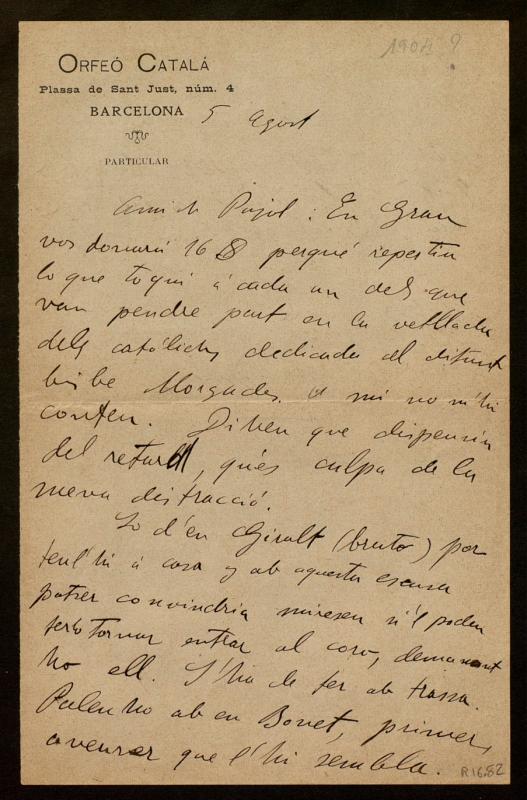 1904 ?
ORFEÓ CATALÁ
Plassa de Sant Just, núm. 4
BARCELONA
PARTICULAR
5 Agost
Amich Pujol: En Gran
vos donará 16 perqué repertiu
lo que toqui á cada un dels que
van pendre part en la vetllada
dels católichs dedicada al difunt
bisbe Morgades. A mi no m'hi
conten. Diuen que dispensin
del retart, qu'es culpa de la
meva distracció.
Lo d'en Giralt (bruto) por
tenl'hi á casa y ab aquesta escusa
potser convindria miressen si'l poden
ferlo tornar entrar al coro, demanant
ho ell. S'ha de fer ab trassa.
Parleuho ab en Bonet, primer,
a veurer que l'hi sembla.
R16.82